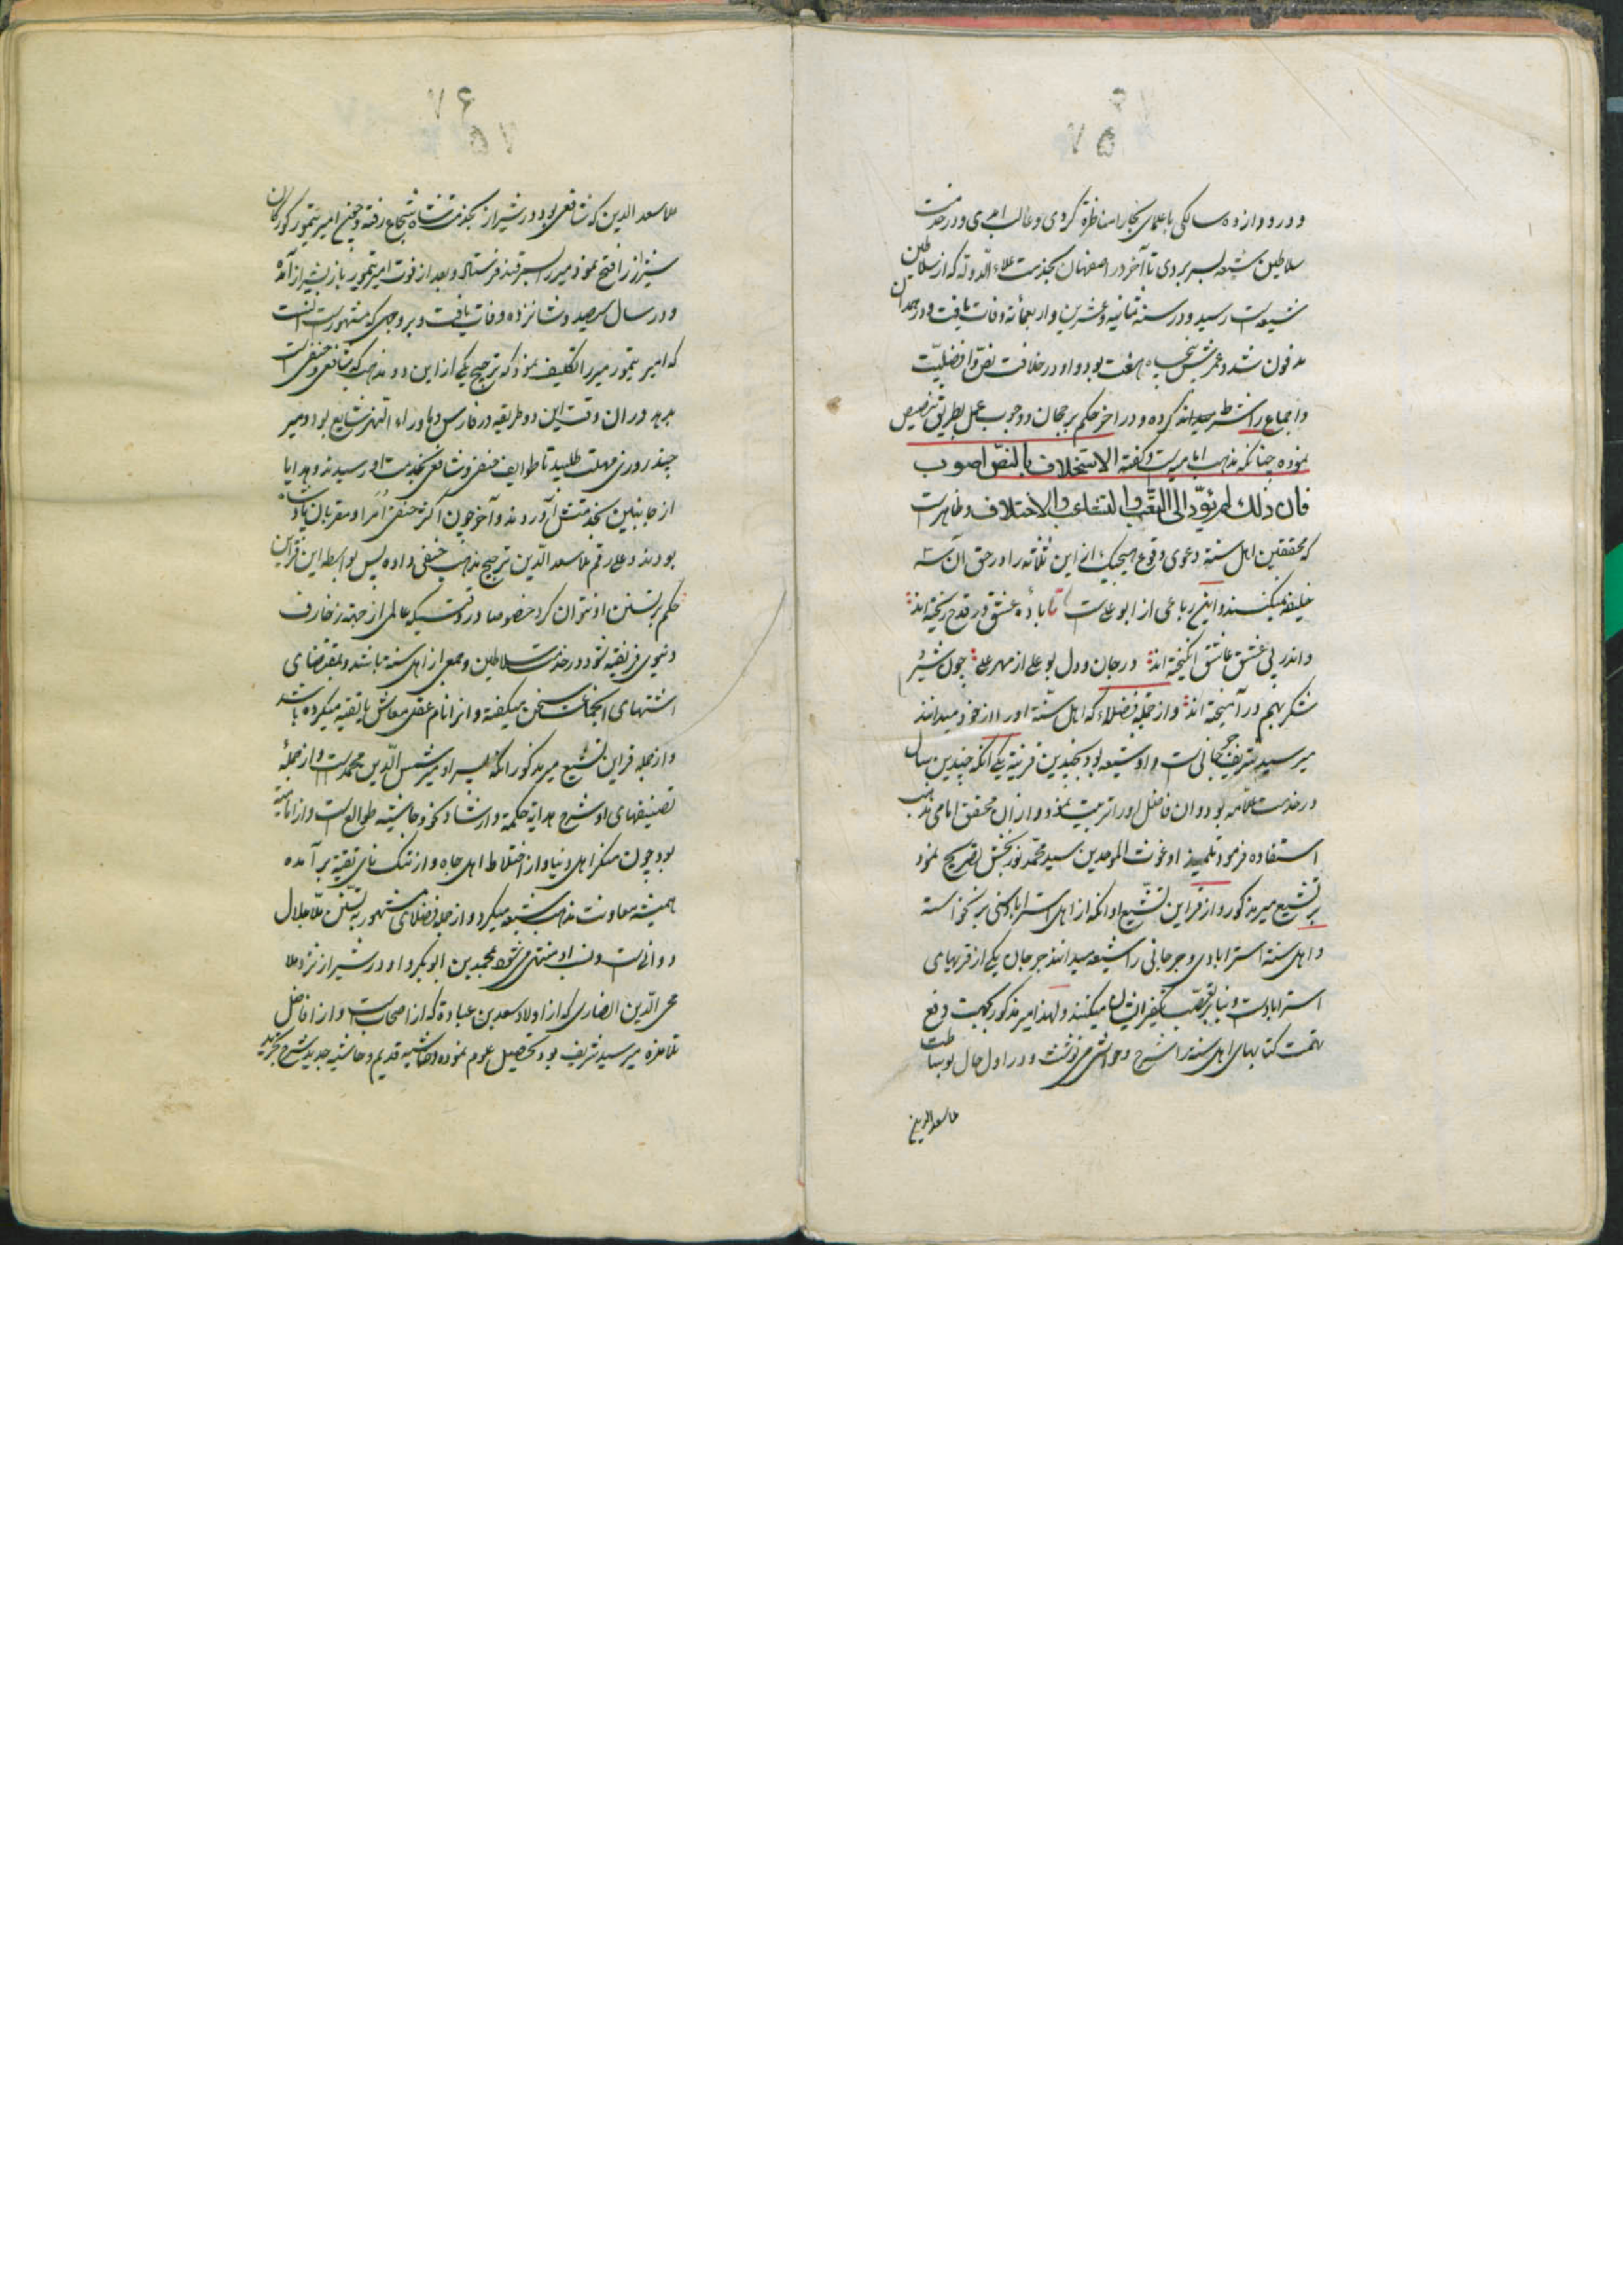 ۷۵
و در دوازده سالگی با علمای بخارا مناظره کردی و غالب امدی و در خدمت
سلاطین شیعه بسر بردی تا آخر در اصفهان بخدمت علاء الدوله که از سلاطین
شیعه است رسید و در سنه ثمانیه و عشرین و اربعمائه وفات یافت و در همدان
مدفون شد و عمرش پنجاه هفت بود و او در خلافت نص و افضلیّت
و اجماع را شرط میداند کرده و در اخر حکم برجحان و وجوب عمل بطریق تنصیص
نموده چنانکه مذهب امامیه است و گفته الاستخلاف بالنصّ اصوب
فان ذلك لم یؤدّ الی التعب والتشاغب والاختلاف و ظاهر است
که محققین اهل سنة دعوی وقوع هیچیک از این ثلثه را در حق آن سه
خلیفه نمیکنند و این رباعی از ابو علی است تا باده عشق در قدح ریخته اند
و اندر پی عشق عاشق انگیخته اند در جان و دل بو علی از مهر علی چون شیر و
شکر بهم در آمیخته اند و از جمله فضلاء که اهل سنّة او را از خود میدانند
میر سید شریف جرجانی است و او شیعه بود بچندین قرینه یکی آنکه چندین سال
در خدمت علّامه بود و ان فاضل او را تربیت نمود و از ان محقق امامی مذهب
استفاده فرمود تلمیذ او غوث الموحدین سید محمّد نوربخش تصریح نمود
بر تشیع میر مذکور و از قراین تشیّع او انکه از اهل استراباد سنی بر نخواسته
و اهل سنة استرابادی و جرجانی را شیعه میدانند جرجان یکی از قریهای
استراباد است و بنابر تعصّب تکفیر ایشان میکنند و لهذا میر مذکور بجهت دفع
تهمت کتابهای اهل سنة را شرح و حواشی مینوشت و در اول حال بوساطت
ملا سعد الدین
۷۶
۷۵
ملا سعد الدین که شافعی بود در شیراز بخدمت شاه شجاع رفته و چون امیر تیمور کورکان
شیراز را فتح نمود میر را بسمرقند فرستاد و بعد از فوت امیر تیمور باز بشیراز آمده
و در سال هرصد و شانزده وفات یافت و بروجهی که مشهور است انست
که امیر تیمور میر را تکلیف نمود که ترجیح یکی از این دو مذهب که شافعی و حنفی است
بدهد در ان وقت این دو طریقه در فارس و ماوراء النهر شایع بود و میر
چند روزی مهلت طلبید تا طوایف حنفی و شافعی بخدمت او رسیدند و هدایا
از جانبین بخدمتش آوردند و آخر چون اکثر حنفی امرا و مقربان پادشاه
بودند و علی رغم ملا سعد الدّین ترجیح مذهب حنفی داده پس بواسطه این قراین
حکم بر تسنن او نتوان کرد خصوصا در وقتیکه عالمی از جهة زخارف
دنیوی فریفته شود در خدمت سلاطین و جمعی از اهل سنة باشد و بمقتضای
اشتهای انجماعت سخن میگفته و انرا نام عقل معاش یا تقیه میکرده باشد
و از جمله قراین تشیع میر مذکور انکه پسر او میر شمس الدّین محمد است و از جملهٔ
تصنیفهای او شرح هدایة حکمة و ارشاد نحو و حاشیه طوالع است و از امامیّه
بود چون منکر اهل دنیا و از اختلاط اهل جاه و از تنک نای تقیه بر آمده
همیشه معاونت مذهب شیعه میکرد و از جمله فضلای مشهور به تسنّن ملّا جلال
دوانی است و نسب او منتهی میشود بمحمد بن ابو بکر و او در شیراز نزد ملا
محی الدّین انصاری که از اولاد سعد بن عباده که از اصحاب است و از افاضل
تلامذه میر سید شریف بود تحصیل علوم نموده و حاشیه قدیم و حاشیه جدید شرح تجرید